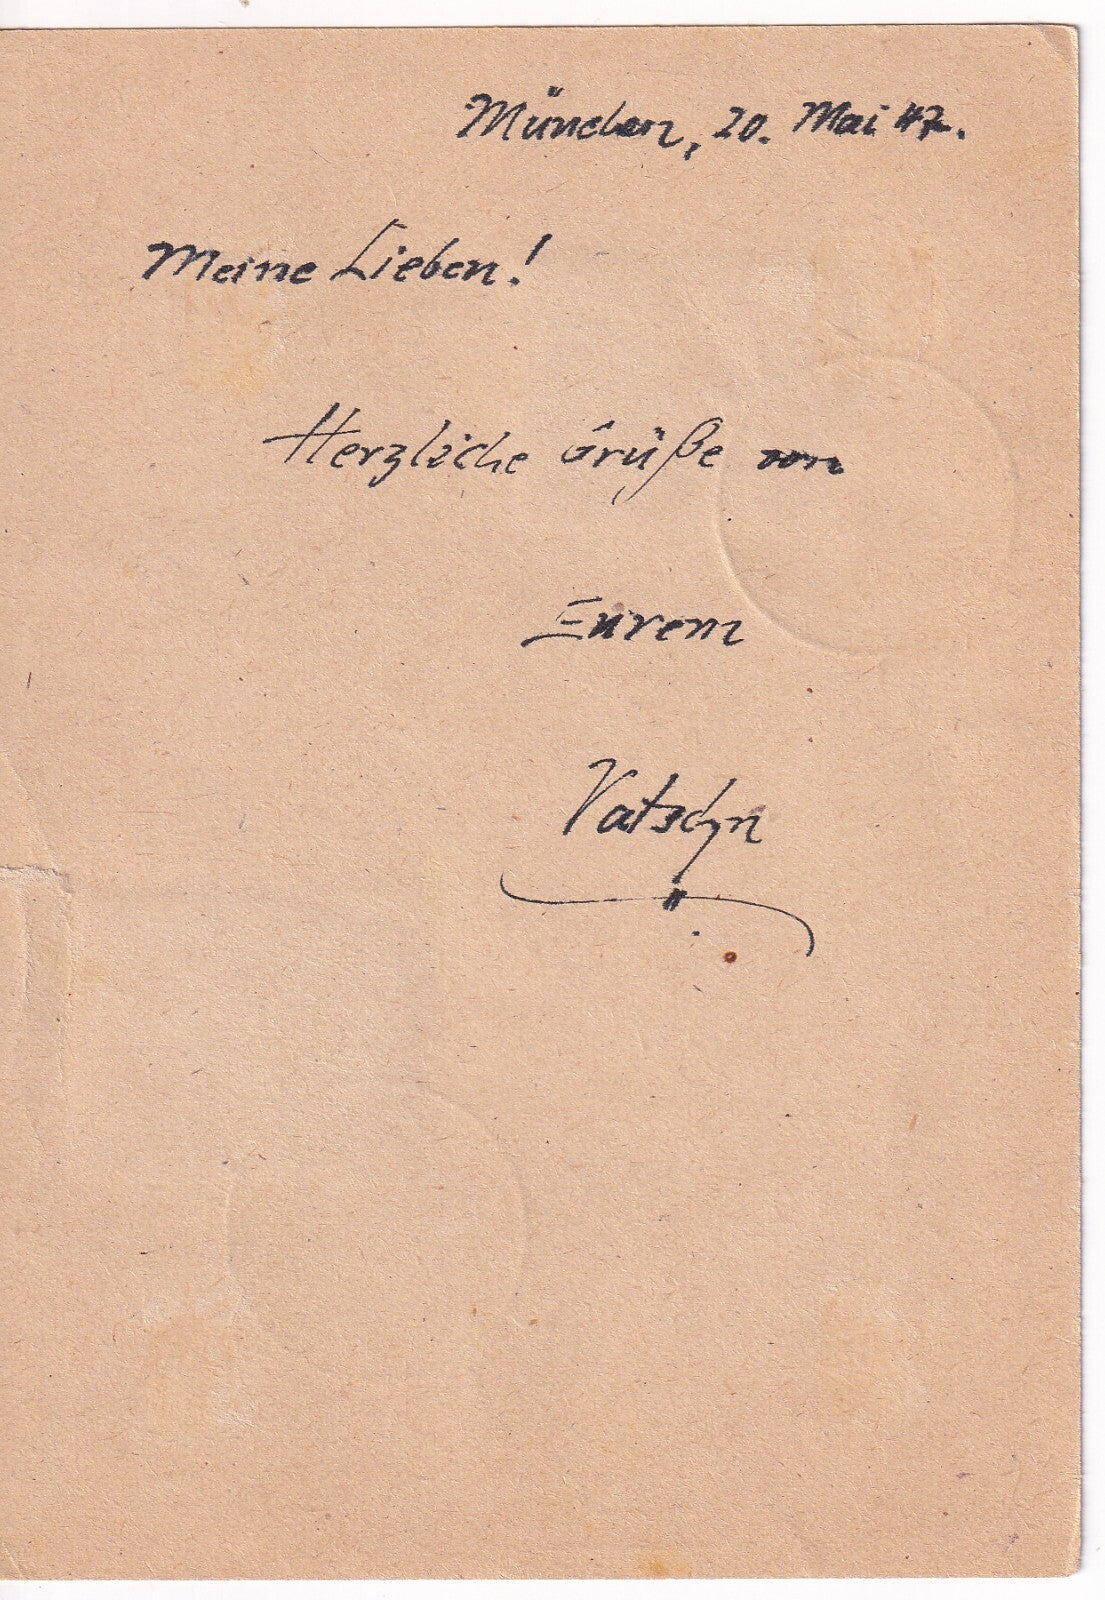 München, 20. Mai 47.
Meine Lieben!
Herzliche Grüße von
Eurem